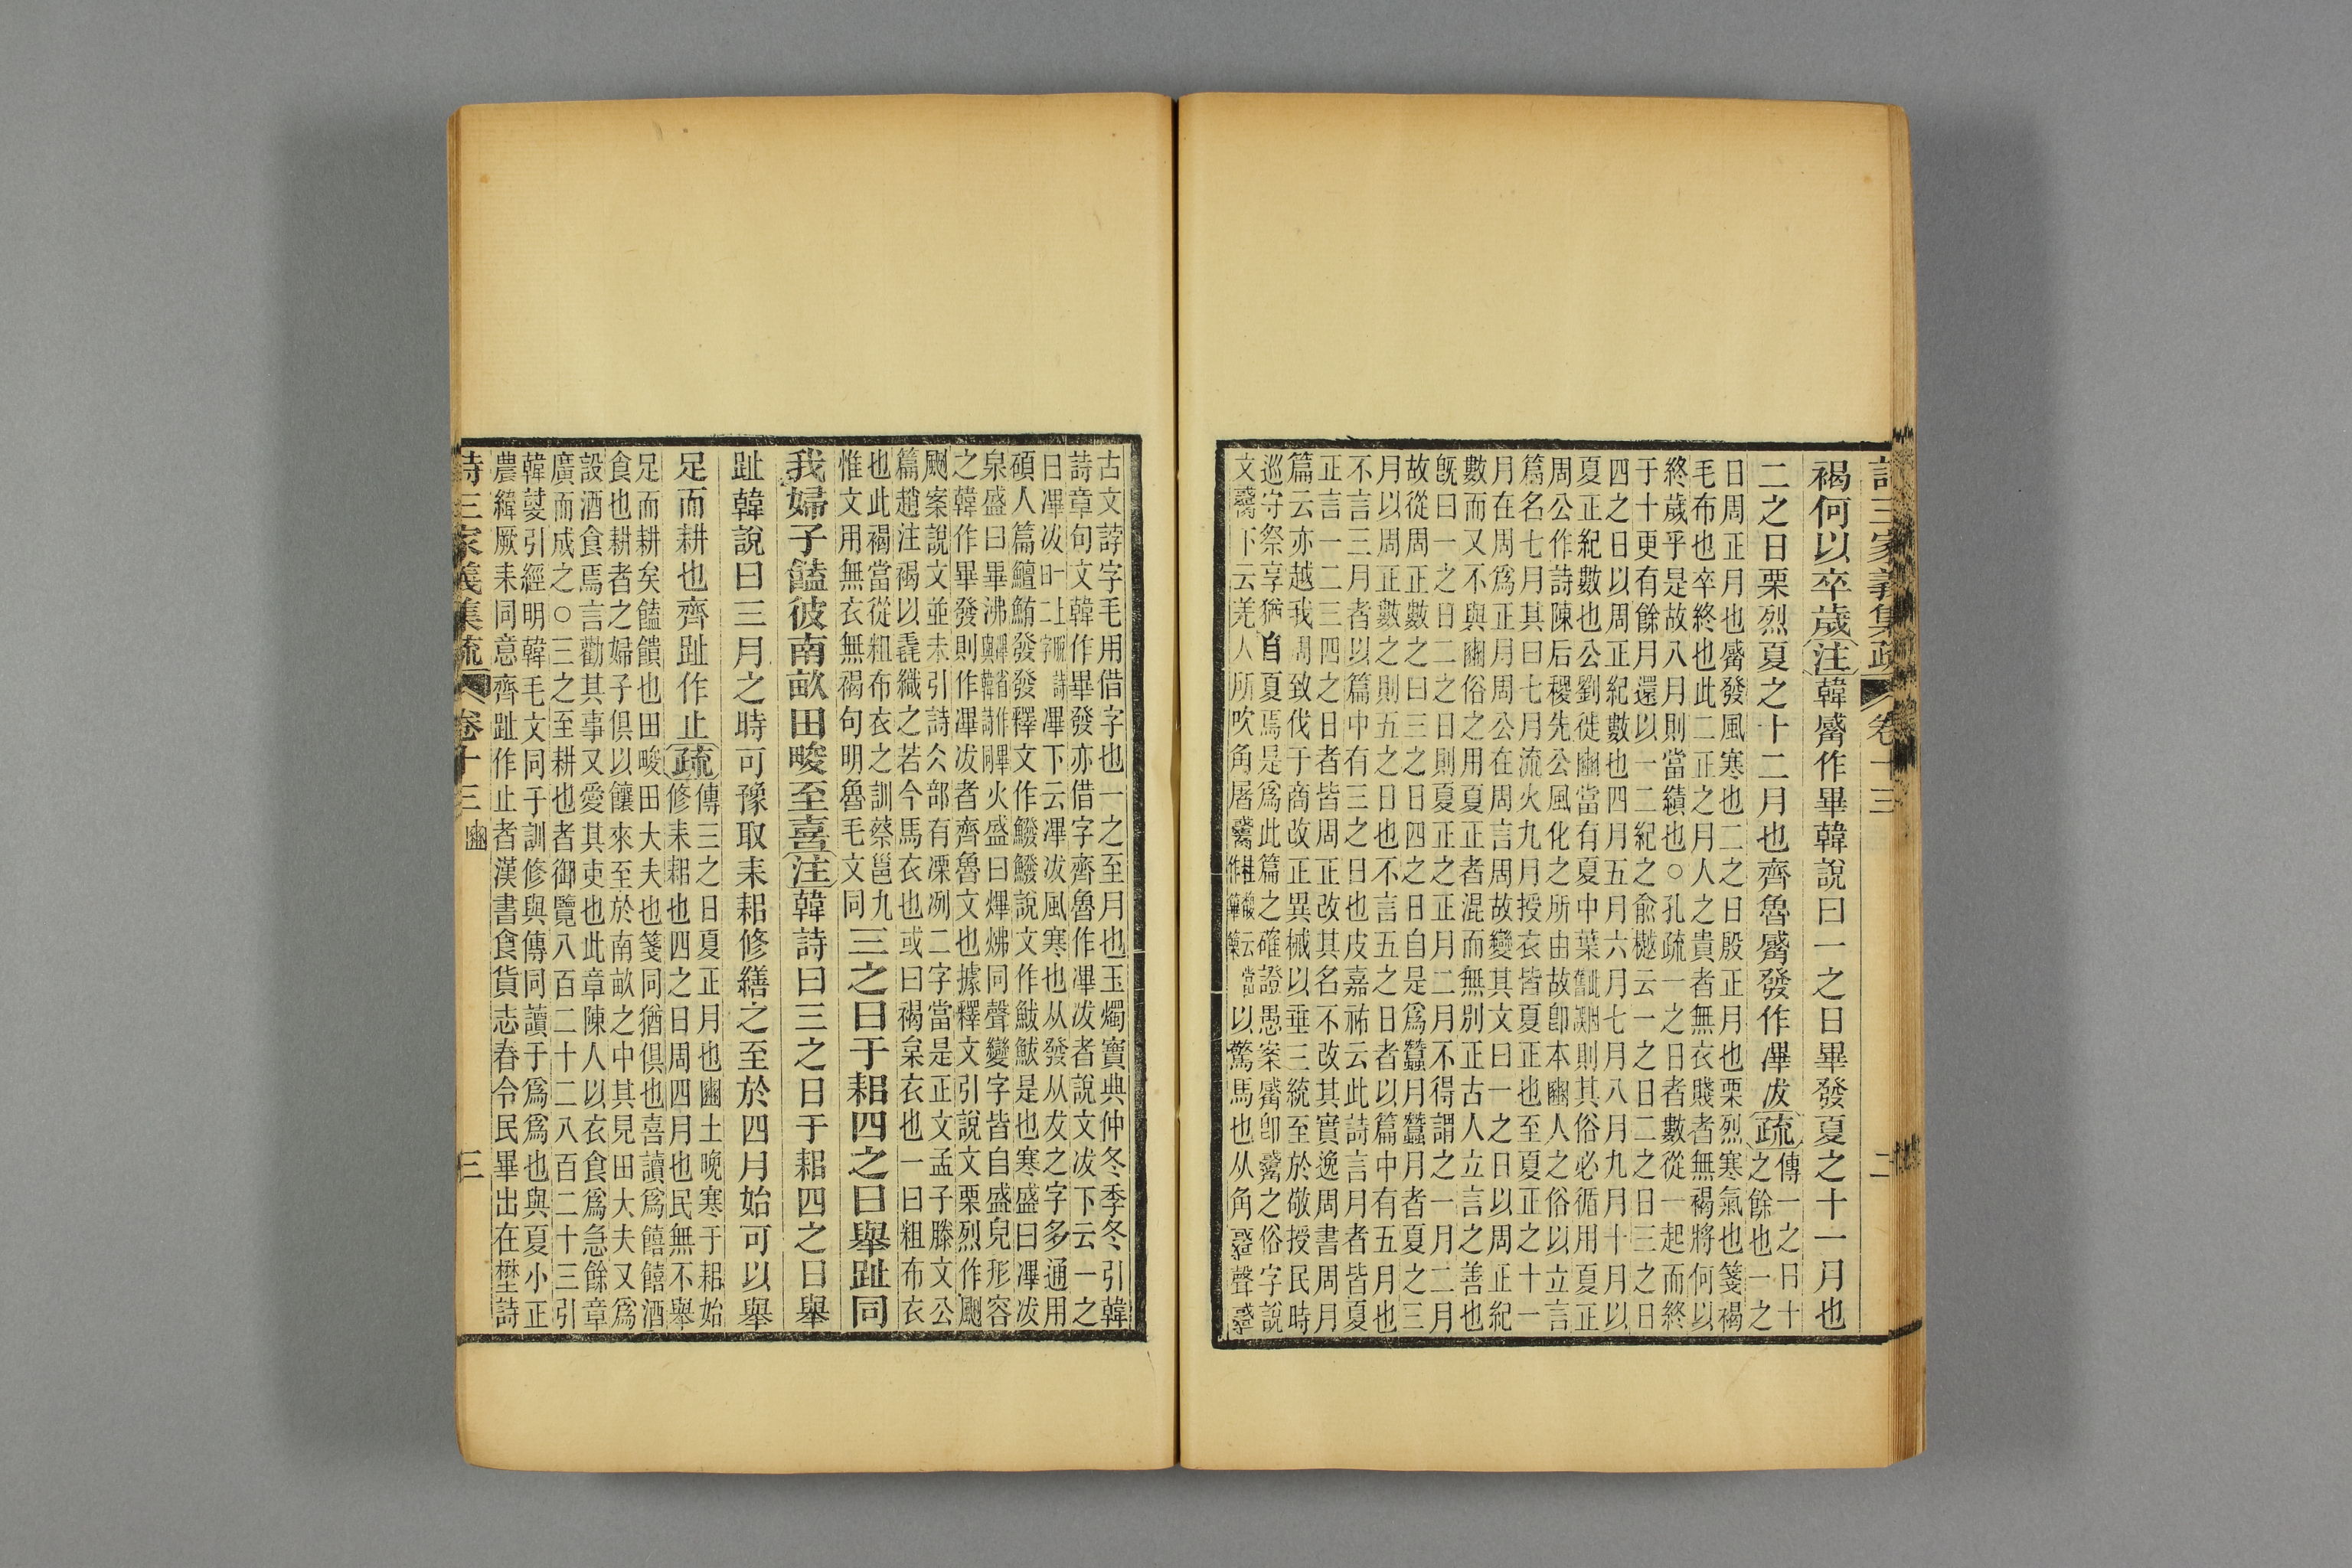 詩三家義集疏 卷十三 二
褐何以卒歲注韓觱作畢韓說曰一之日畢發夏之十一月也
二之日栗烈夏之十二月也齊魯觱發作滭冹疏傳一之日十
之餘也一之
日周正月也觱發風寒也二之日殷正月也栗烈寒氣也箋褐
毛布也卒終也此二正之月人之貴者無衣賤者無褐將何以
終歲乎是故八月則當績也○孔疏一之日者數從一起而終
于十更有餘月還以一二紀之兪樾云一之日二之日三之日
四之日以周正紀數也四月五月六月七月八月九月十月以
夏正紀數也公劉徙豳當有夏中葉則其俗必循用夏正
周公作詩陳后稷先公風化之所由故卽本豳人之俗以立言
篇名七月其曰七月流火九月授衣皆夏正也至夏正之十一
月在周爲正月周公在周言周故變其文曰一之日以周正紀
數而又不與豳俗之用夏正者混而無別正古人立言之善也
旣曰一之日二之日則夏正之正月二月不得謂之一月二月
故從周正數之曰三之日四之日自是爲蠶月蠶月者夏之三
月以周正數之則五之日也不言五之日者以篇中有五月也
不言三月者以篇中有三之日也皮嘉祐云此詩言月者皆夏
正言一二三四之日者皆周正改其名不改其實逸周書周月
篇云亦越我周致伐于商改正異械以垂三統至於敬授民時
巡守祭享猶自夏焉是爲此篇之確證愚案觱卽䶌之俗字說
文䶌下云羌人所吹角屠䶌以驚馬也从角聲
古文誖字毛用借字也一之至月也玉燭寶典仲冬季冬引韓
詩章句文韓作畢發亦借字齊魯作滭冹者說文冹下云一之
日滭冹滭下云滭冹風寒也从冫犮之字多通用
碩人篇鱣鮪發發釋文作鱍鱍說文作鮁鮁是也寒盛曰滭冹
泉盛曰畢沸火盛曰熚炥同聲變字皆自盛皃形容
之韓作畢發則作滭冹者齊魯文也據釋文引說文栗烈作颲
颲案說文並未引詩仌部有凓冽二字當是正文孟子滕文公
篇趙注褐以毳織之若今馬衣也或曰褐枲衣也一曰粗布衣
也此褐當從粗布衣之訓蔡邕九
惟文用無衣無褐句明魯毛文同三之日于耜四之日舉趾同
我婦子饁彼南畝田畯至喜注韓詩曰三之日于耜四之日舉
趾韓說曰三月之時可豫取耒耜修繕之至於四月始可以舉
足而耕也齊趾作止疏傳三之日夏正月也豳土晚寒于耜始
修耒耜也四之日周四月也民無不舉
足而耕矣饁饋也田畯田大夫也箋同猶俱也喜讀爲饎饎酒
食也耕者之婦子俱以饟來至於南畝之中其見田大夫又爲
設酒食焉言勸其事又愛其吏也此章陳人以衣食爲急餘章
廣而成之○三之至耕也者御覽八百二十二八百二十三引
韓說引經明韓毛文同于訓修與傳同讀于爲爲也與夏小正
農緯厥耒同意齊趾作止者漢書食貨志春令民畢出在壄詩
詩三家義集疏 卷十三 豳 三